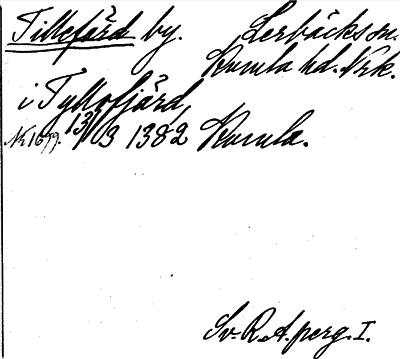 Tillefärd by. Lerbäcks sn.
Kumla hd. Nrk.
i Tyllofjärd,
Nr 1679. 13/3 1382 Kumla.
Sv. R. A. perg. I.